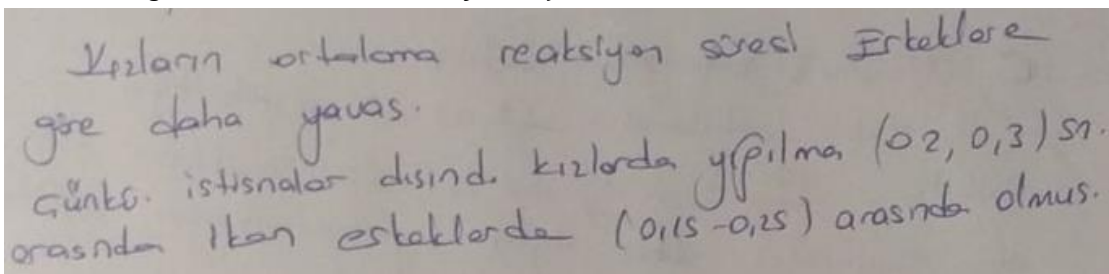 Kızların ortalama reaksiyon süresi Erkeklere
göre daha yavaş.
Çünkü. istisnalar dışınd. kızlarda yığılma (02, 0,3) sn.
arasında iken erkeklerde (0,15-0,25) arasında olmuş.